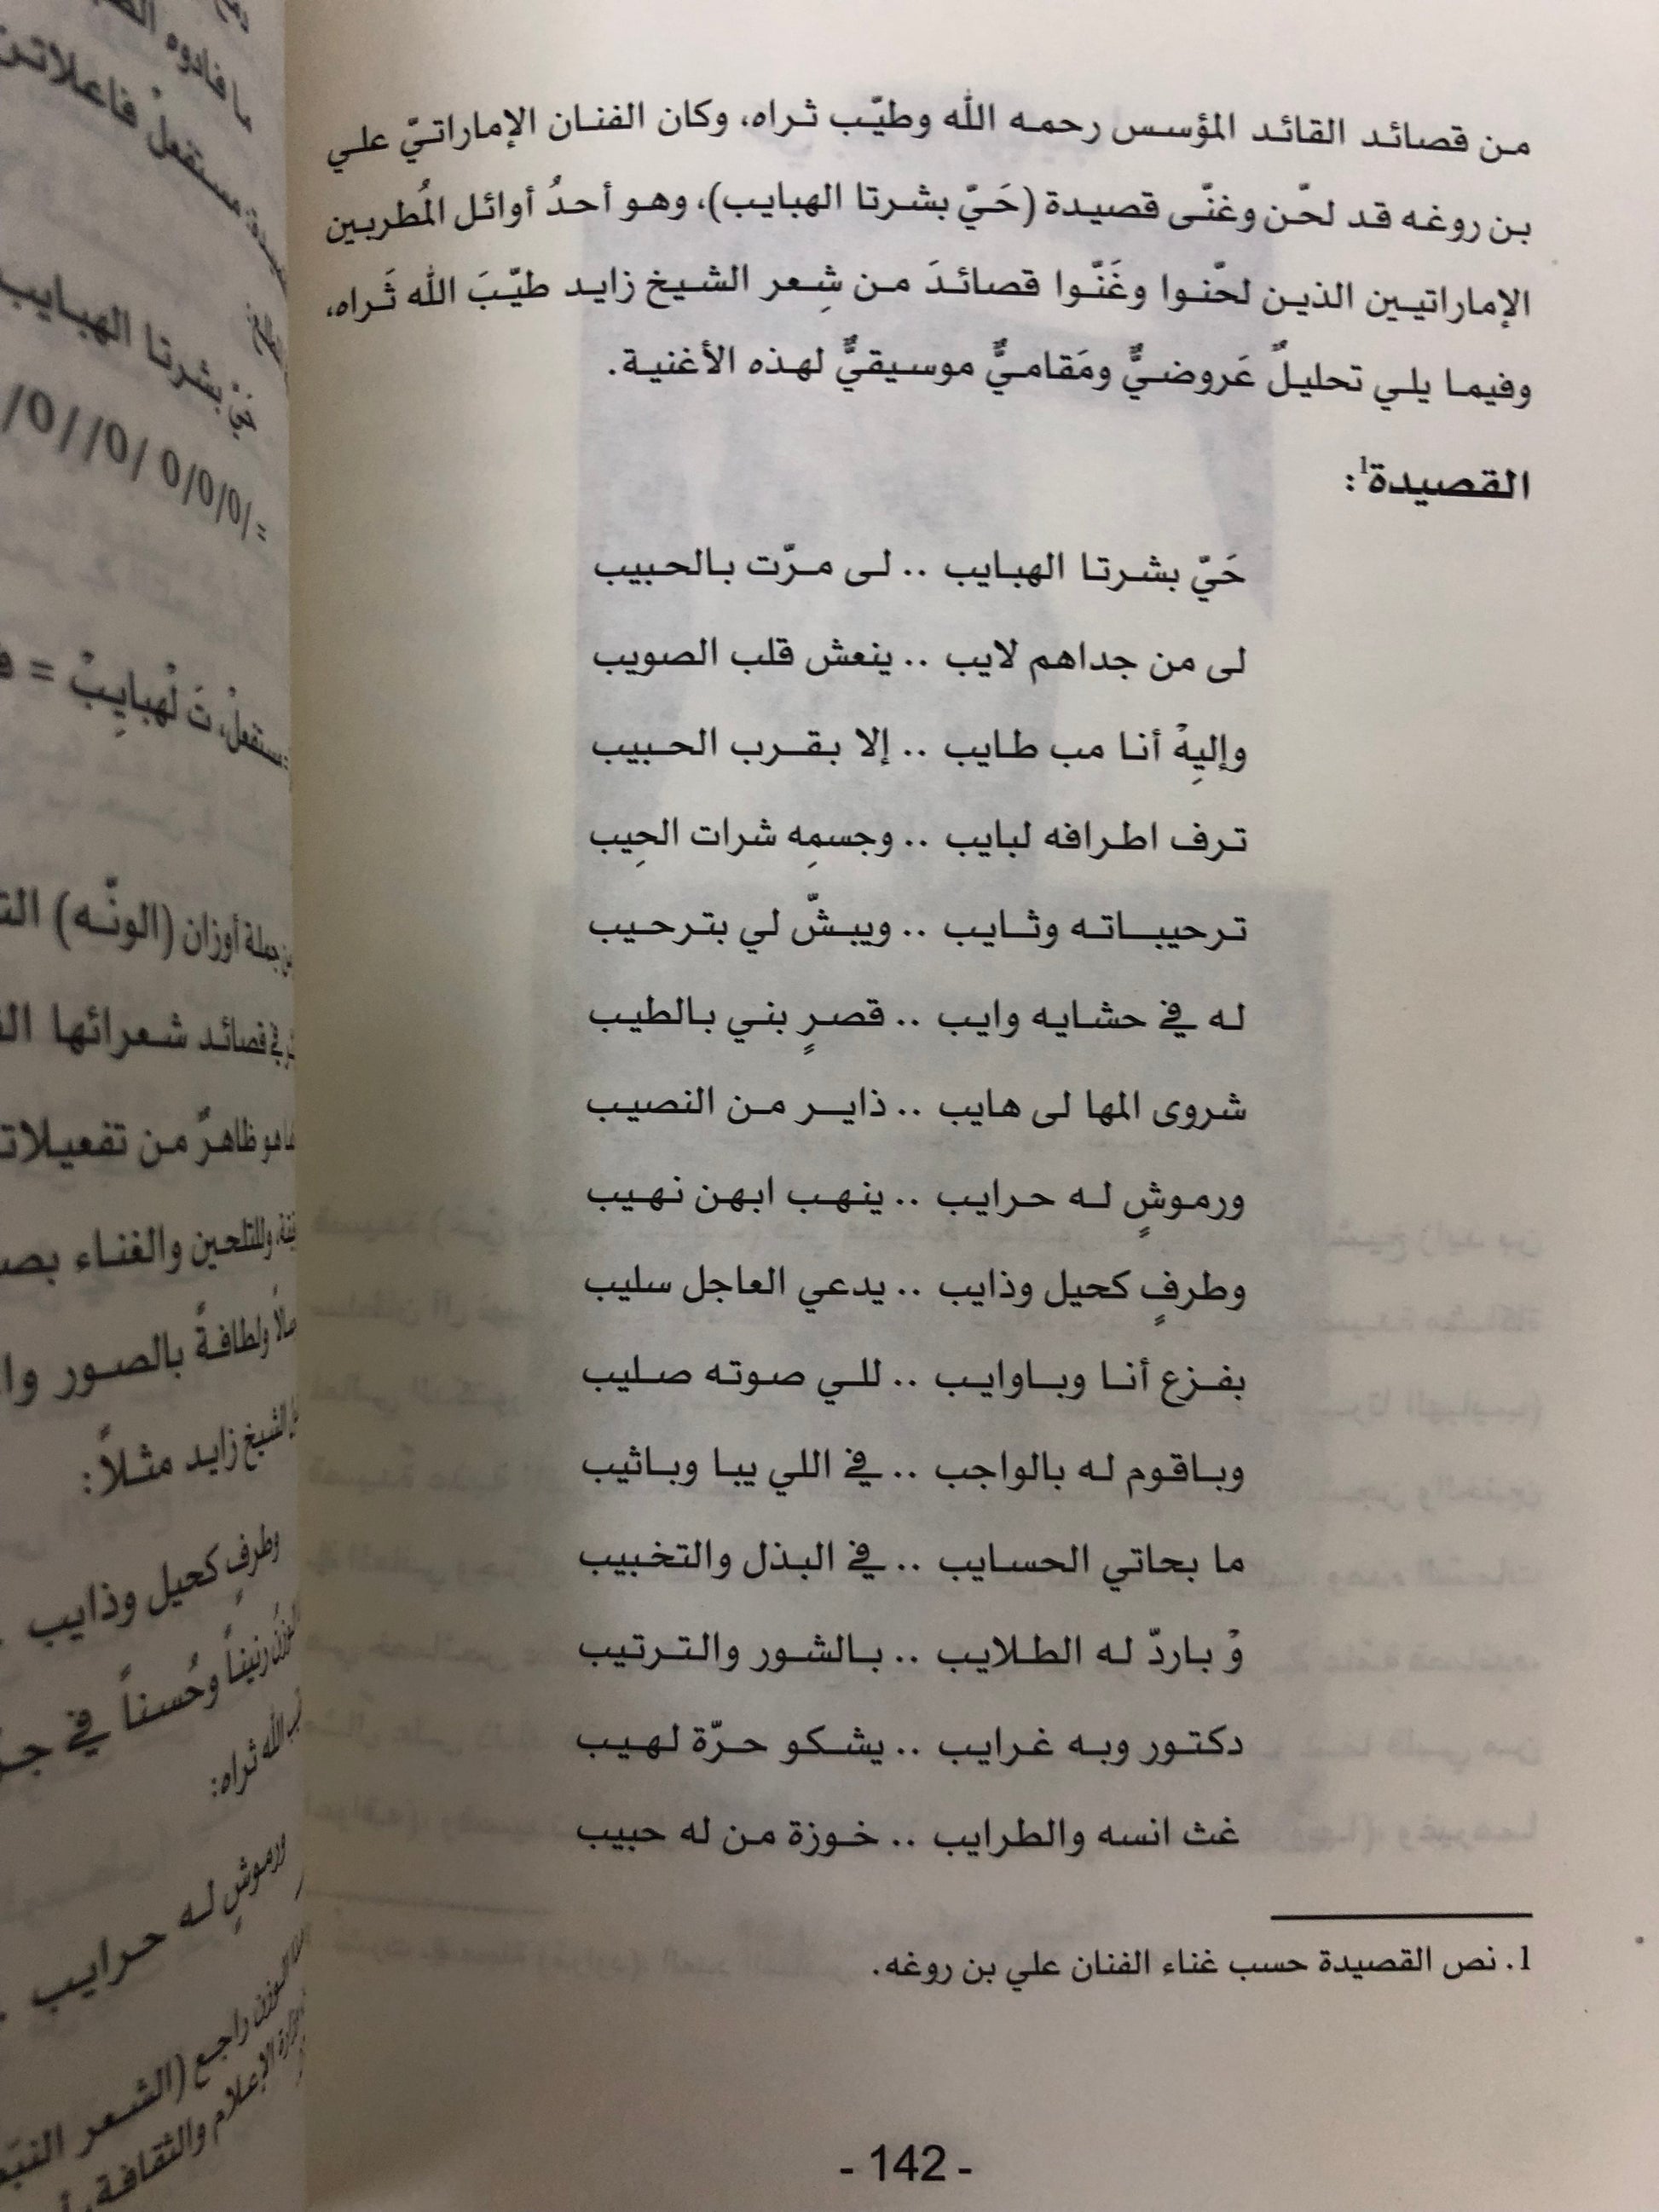 من قصائد القائد المؤسس رحمه الله وطيّب ثراه، وكان الفنان الإماراتيّ علي
بن روغه قد لحّن وغنّى قصيدة (حَيّ بشرتا الهبايب)، وهو أحدُ أوائل المُطربين
الإماراتيين الذين لحّنوا وغَنّوا قصائدَ من شِعر الشيخ زايد طيّبَ الله ثَراه،
وفيما يلي تحليلٌ عَروضيٌّ ومَقاميٌّ موسيقيٌّ لهذه الأغنية.
القصيدة1:
حَيّ بشرتا الهبايب .. لى مرّت بالحبيب
لى من جداهم لايب .. ينعش قلب الصويب
وإليِهْ أنا مب طايب .. إلا بقرب الحبيب
ترف اطرافه لبايب .. وجسمِه شرات الحِيب
ترحيباته وثايب .. ويبشّ لي بترحيب
له في حشايه وايب .. قصرٍ بني بالطيب
شروى المها لى هايب .. ذاير من النصيب
ورموشٍ له حرايب .. ينهب ابهن نهيب
وطرفٍ كحيل وذايب .. يدعي العاجل سليب
بفزع أنا وباوايب .. للي صوته صليب
وباقوم له بالواجب .. في اللي يبا وباثيب
ما بحاتي الحسايب .. في البذل والتخبيب
وْ باردّ له الطلايب .. بالشور والترتيب
دكتور وبه غرايب .. يشكو حرّة لهيب
غث انسه والطرايب .. خوزة من له حبيب
1. نص القصيدة حسب غناء الفنان علي بن روغه.
- 142 -
مستفعلْ فاعلاتن
بشرتا الهبايب
/0/0/0 /0//0/
مستفعلْ، تَ لْهبايِبْ =
جملة أوزان (الونّه)
قصائد شعرائها
هو ظاهرٌ من تفعيلات
وللتلحين والغناء
ولطافةً بالصور
الشيخ زايد مثلاً:
وطرفٍ كحيل وذايب
رنيناً وحُسناً في
الله ثراه:
ورموشٍ له حرايب
راجع (الشعر
الإعلام والثقافة،